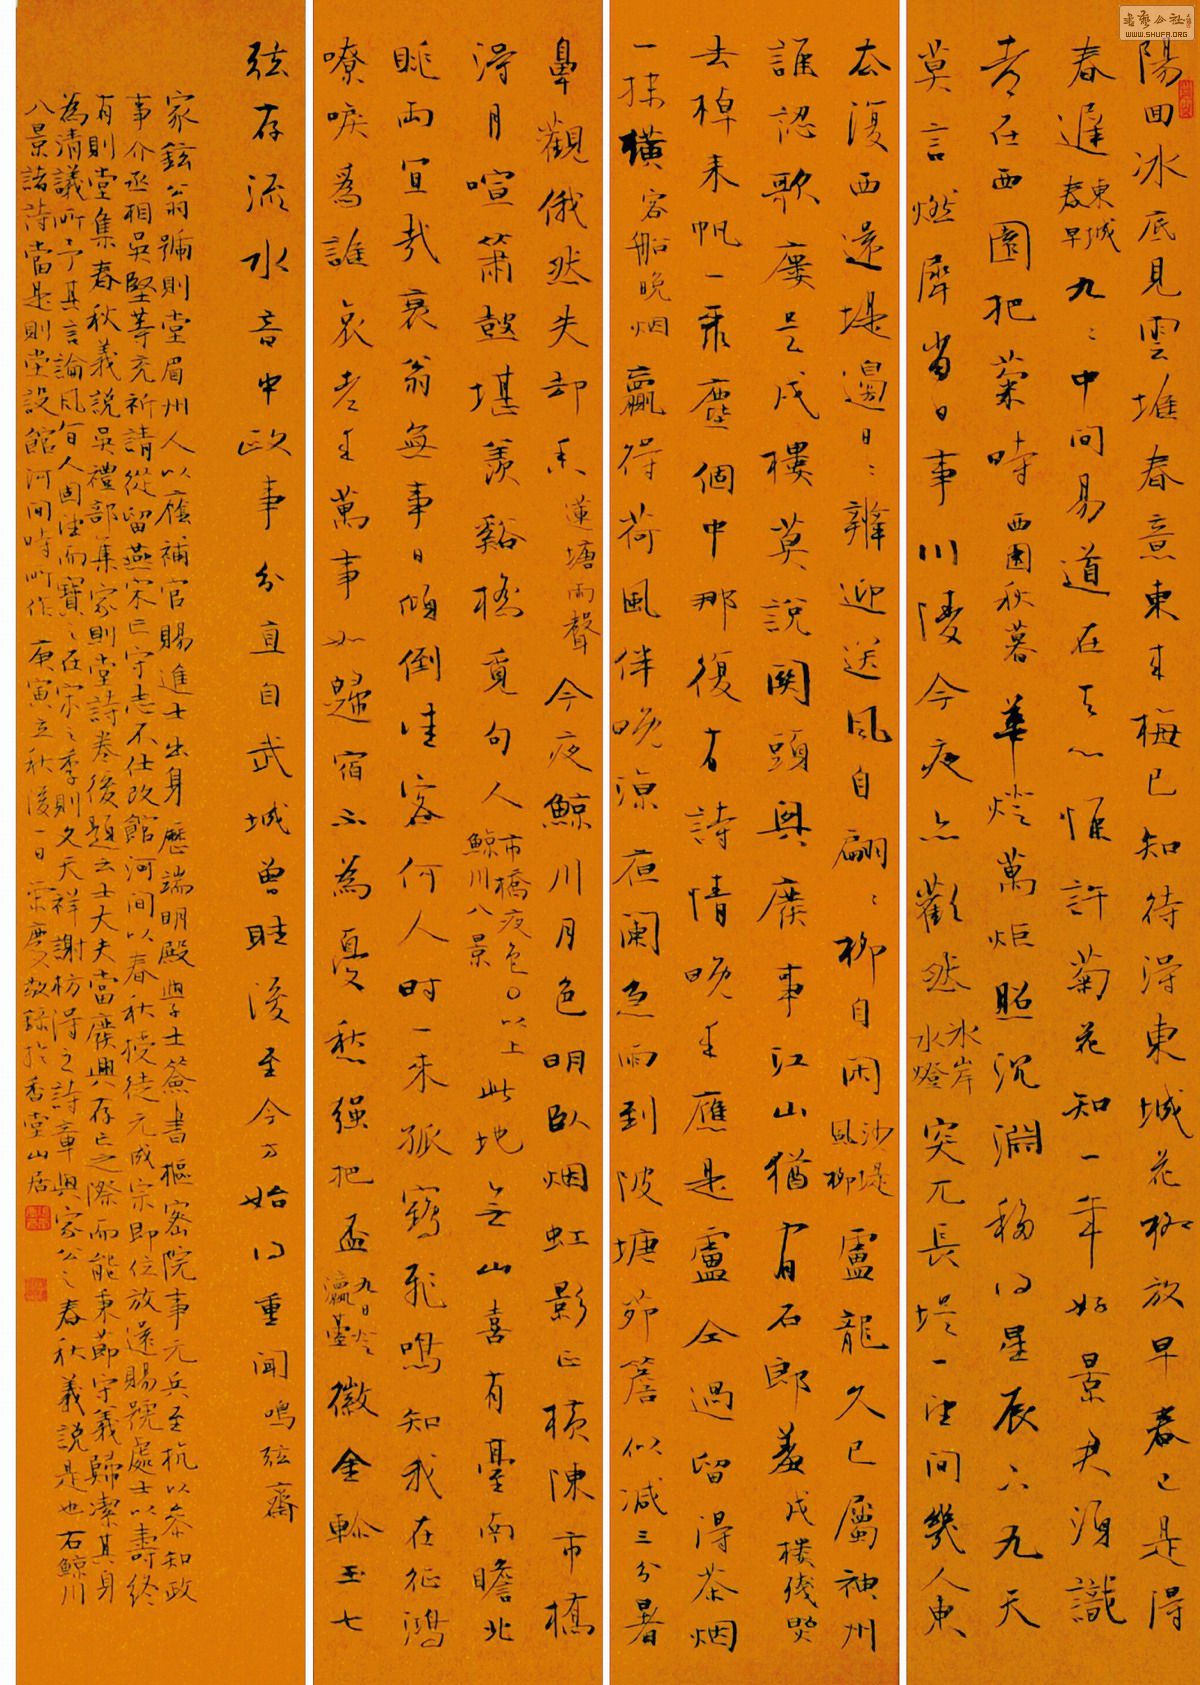 陽回冰底見雲堆春意東來梅已知待得東城花柳放早春已是得
春遲 東城春早 九〻中間易道在天心惟許菊花知一年好景君須識
在西園把菊時 西園秋暮 華燈萬炬照沉淵移得星辰下九天
莫言燃犀當日事川陵今夜亦歡然 水岸水燈 突兀長堤一望間幾人東
去復西還堤邊日〻難迎送風自翩〻柳自閑 沙堤風柳 盧龍久已屬神州
誰認歌廔是戍樓莫說關頭興廢事江山猶有石郎羞 戍樓殘照
去棹來帆一聚塵個中那復有詩情晚來應是盧仝過留得茶烟
一抹橫 客船晚烟 贏得荷風伴晚涼夜闌急雨到陂塘茆簷似減三分暑
鼻觀俄然失却香 蓮塘雨聲 今夜鯨川月色明臥烟虹影正橫陳市橋
得月喧簫鼓堪羨谿橋覓句人 市橋夜色○以上鯨川八景 此地無山喜有臺南瞻北
眺兩宜哉衰翁無事日傾倒佳客何人時一來孤鶴飛鳴知我在征鴻
嘹唳爲誰哀老來萬事如歸宿不為憂愁强把盃 九日登瀛臺 徽金軫玉七
弦存流水音中政事分直自武城曾聽後至今方始得重聞 鳴弦齋
家鉉翁號則堂眉州人以蔭補官賜進士出身歷端明殿學士簽書樞密院事元兵至杭以參知政
事介丞相吳堅等充祈請從留燕宋亡守志不仕改館河間以春秋授徒元成宗即位放還賜號處士以壽終
有則堂集春秋義說吳禮部集家則堂詩卷後題云士大夫當廢興存亡之際而能秉節守義歸潔其身
為清議所予其言論風旨人固望而寶之在宋之季則文天祥謝枋得之詩章與家公之春秋義說是也右鯨川
八景諸詩當是則堂設館河間時所作 庚寅立秋後一日 敬錄於香堂山居
書藝公社
WWW.SHUFA.ORG